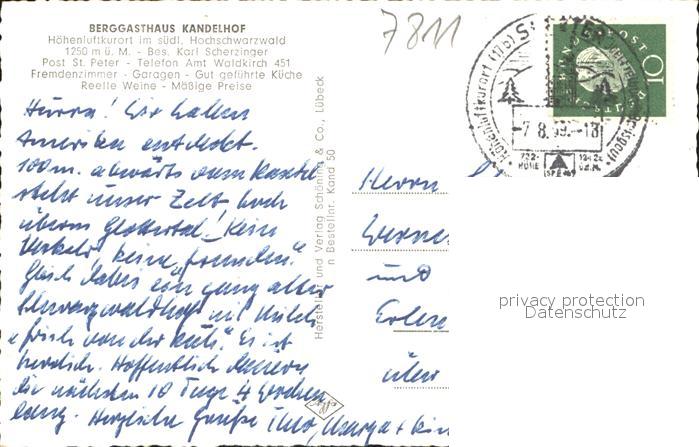 BERGGASTHAUS KANDELHOF
Höhenluftkurort im südl. Hochschwarzwald
1250 m ü. M. - Bes. Karl Scherzinger
Post St. Peter - Telefon Amt Waldkirch 451
Fremdenzimmer - Garagen - Gut geführte Küche
Reelle Weine - Mäßige Preise
7811
Hurra! Wir haben
Amerika entdeckt.
100 m. abwärts vom Kandel
steht unser Zelt hoch
überm Glottertal! Kein
Verkehr, keine "Fremden".
Gleich dabei ein ganz alter
Schwarzwaldhof mit Milch
"frisch von der Kuh". Es ist
herrlich. Hoffentlich dauern
die nächsten 10 Tage 4 Wochen
lang. Herzliche Grüße Theo, Marga +
Hersteller und Verlag Schöning & Co., Lübeck
n Bestellnr. Kand 50
Höhenluftkurort
-7.8.59.-18
DEUTSCHE BUNDESPOST
10
Herrn
Werne
und
Erlen
über
privacy protection
Datenschutz